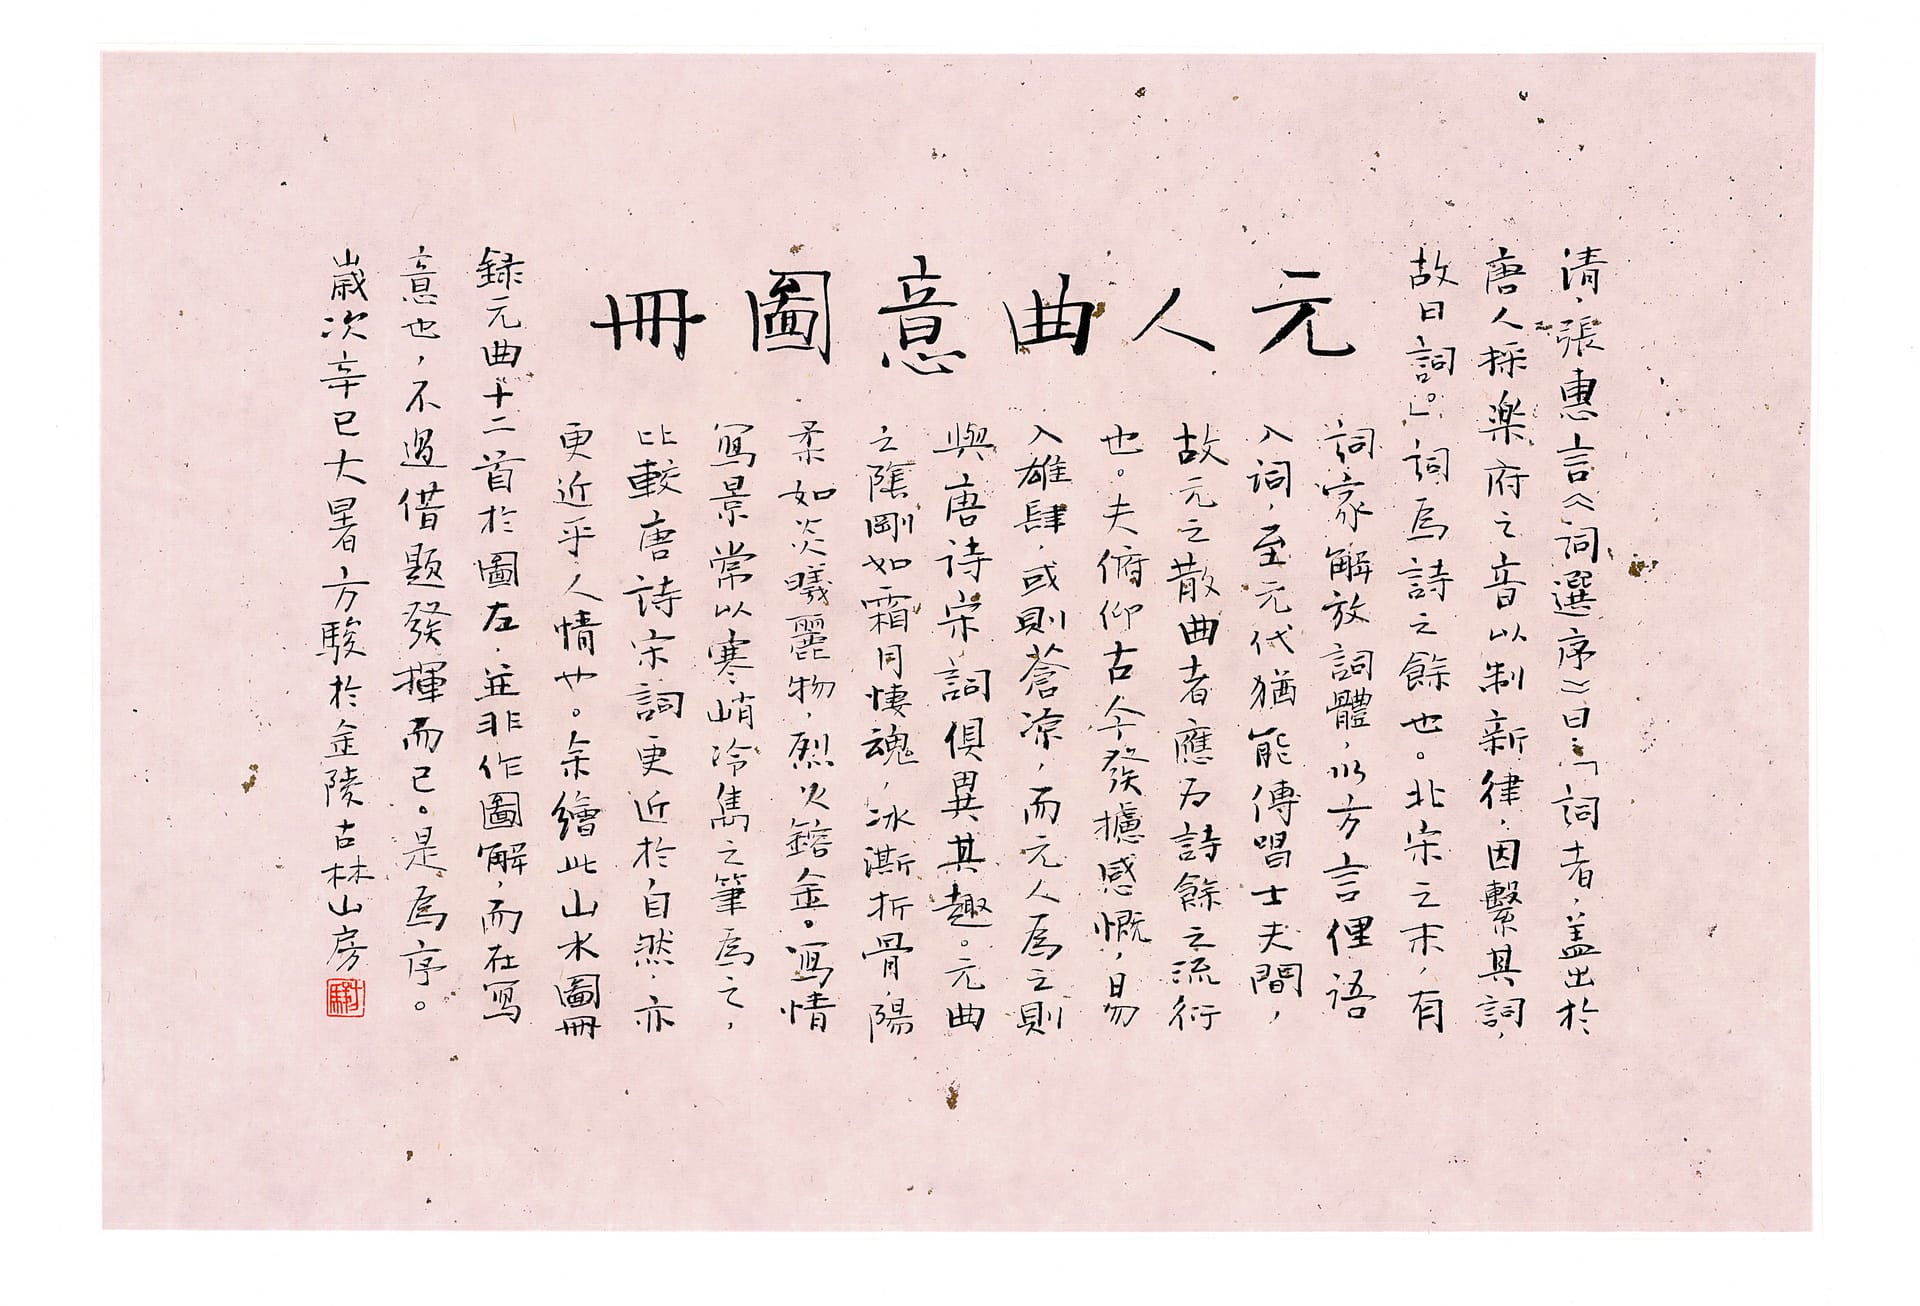 清，張惠言《詞選序》曰：「詞者，盖出於
唐人採楽府之音以制新律，因繫其詞，
故曰詞。」詞爲詩之餘也。北宋之末，有
元人曲意圖冊
詞家解放詞體，以方言俚语
入词，至元代猶能傳唱士夫間，
故元之散曲者應为詩餘之流衍
也。夫俯仰古今發攄感慨，易
入雄肆，或則蒼凉，而元人爲之則
與唐诗宋詞俱異其趣。元曲
之陰剛如霜月悽魂，冰澌折骨，陽
柔如炎曦麗物，烈火鎔金。寫情
寫景常以寒峭冷雋之筆爲之，
比較唐詩宋詞更近於自然，亦
更近乎人情也。余繪此山水圖冊
録元曲十二首於圖左，並非作圖解，而在寫
意也，不過借题發揮而已。是爲序。
歲次辛巳大暑方駿於金陵古林山房